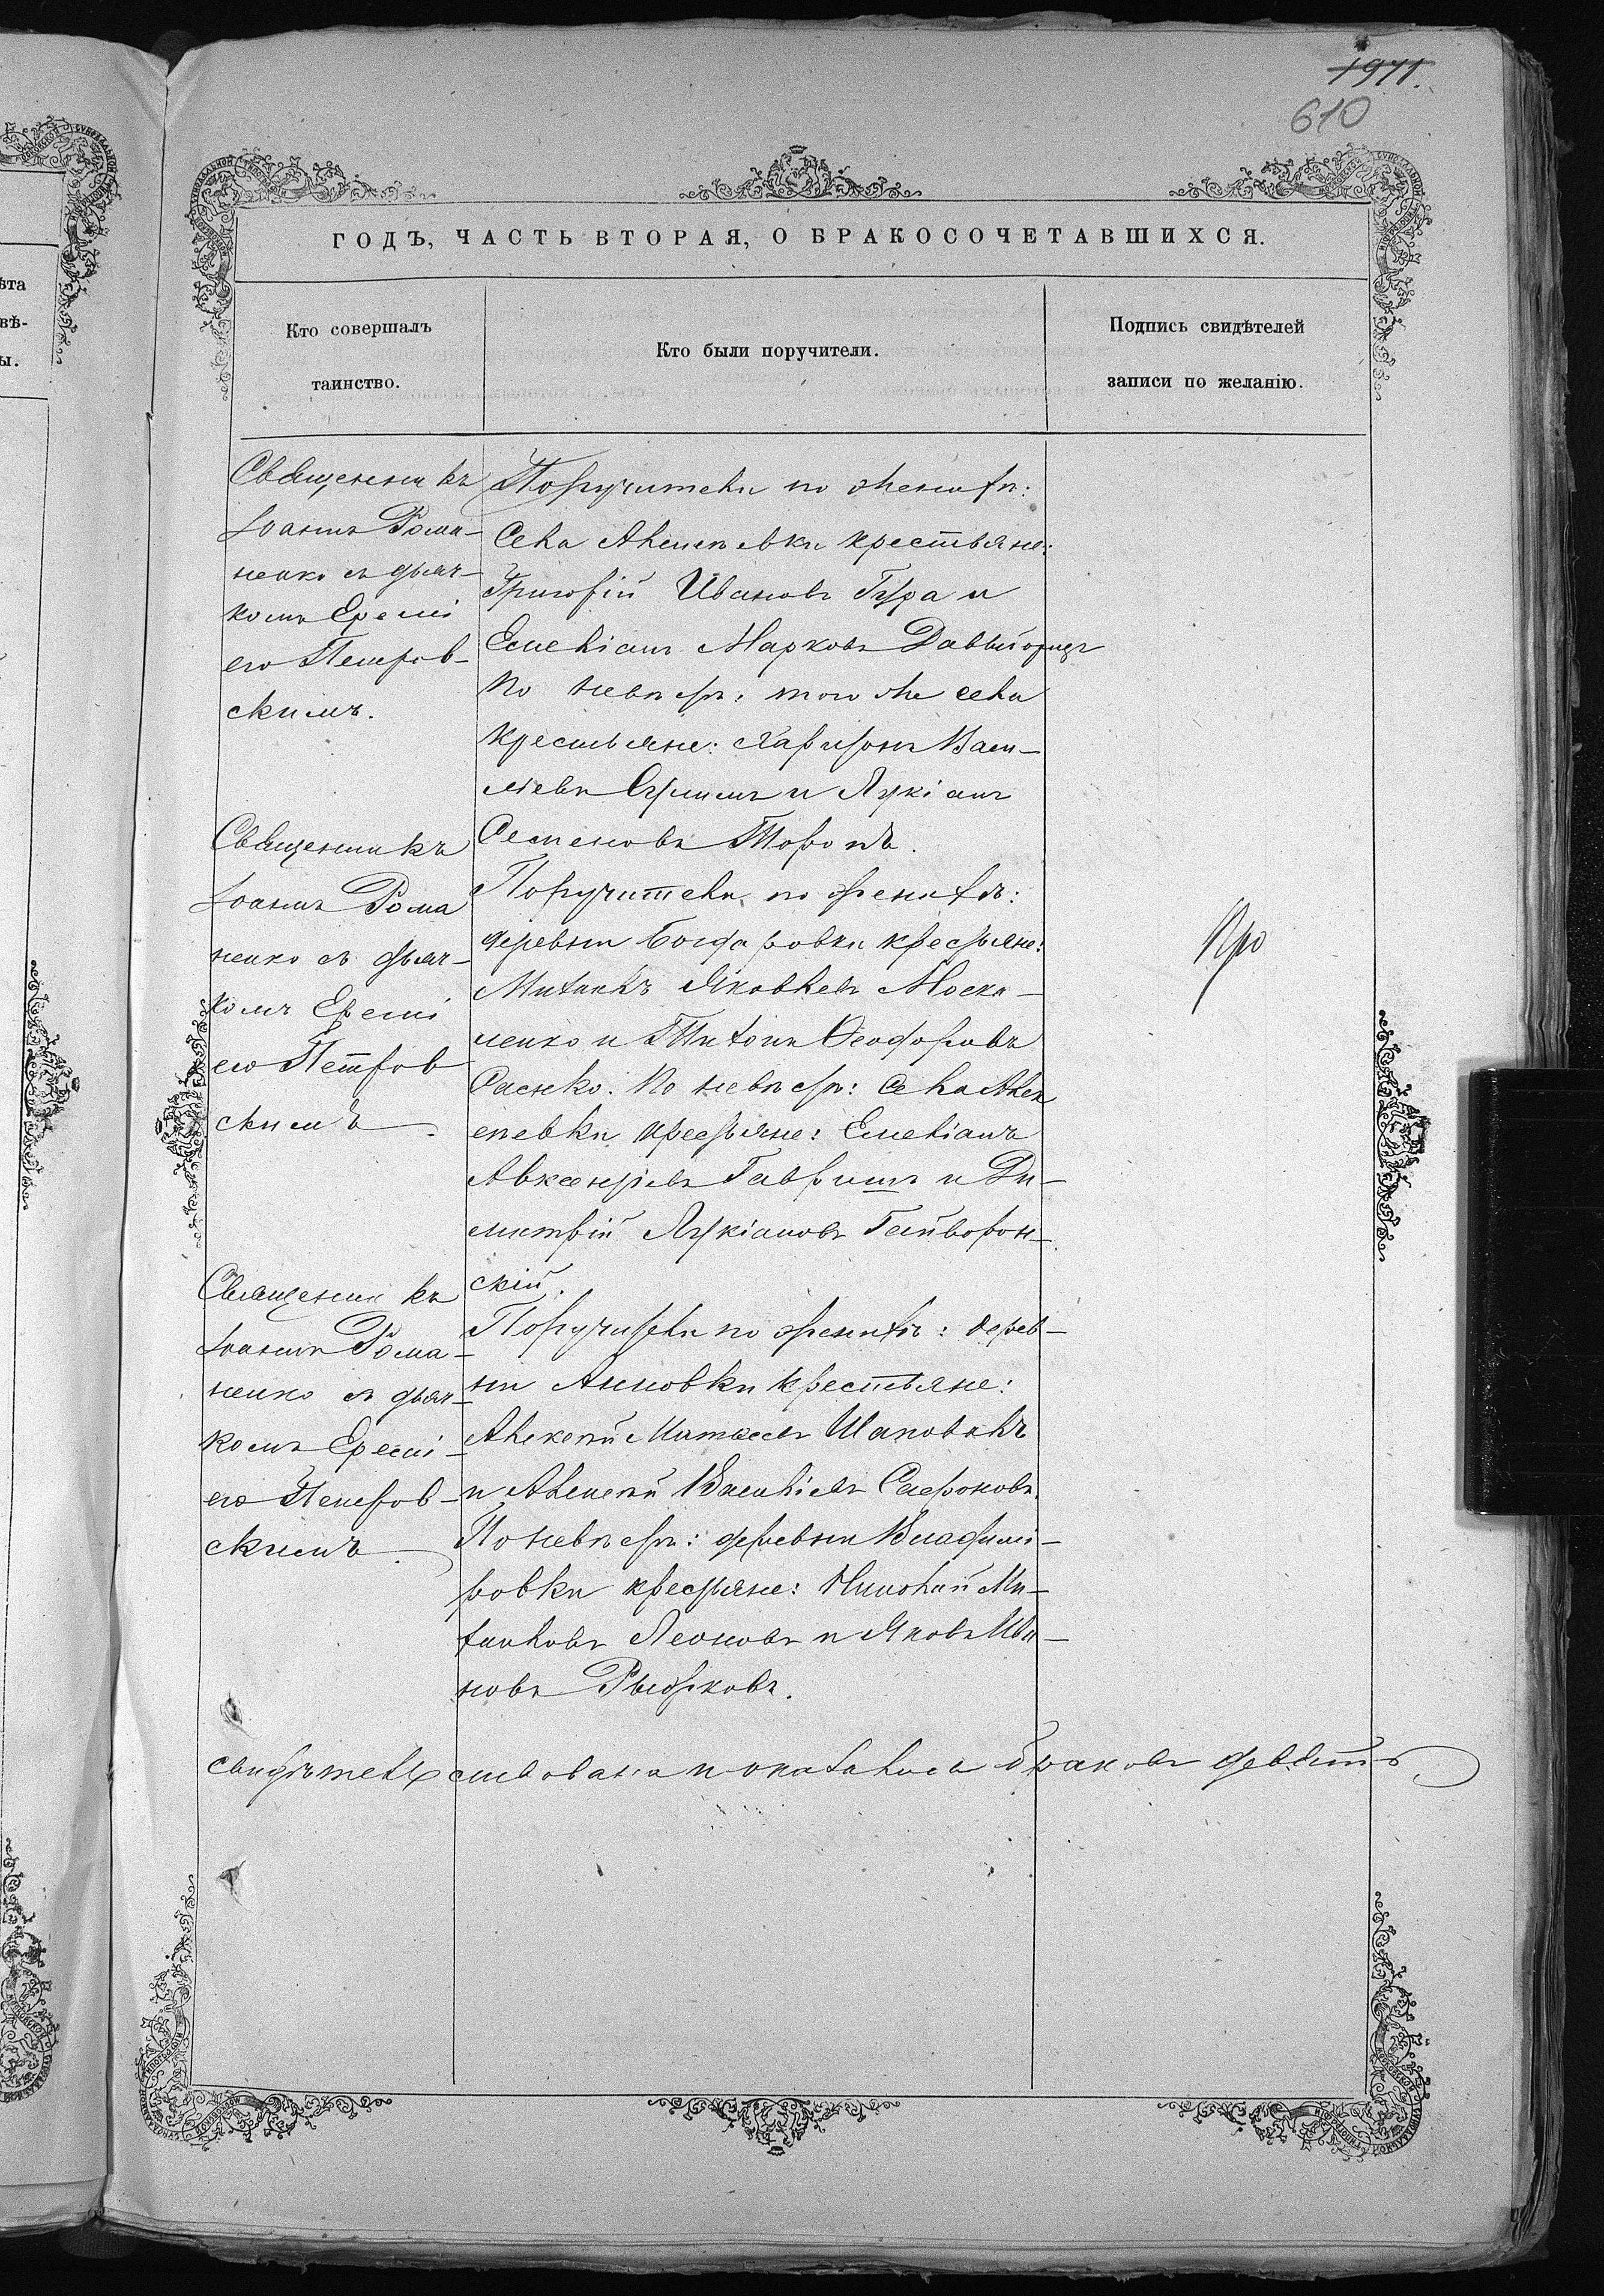 1971.
610
ГОДЪ, ЧАСТЬ ВТОРАЯ, О БРАКОСОЧЕТАВШИХСЯ.
Кто совершалъ
таинство.
Кто были поручители.
Подпись свидѣтелей
записи по желанію.
Священникъ
Іоаннъ Рома-
ненко съ дьяч-
комъ Еремі
ею Петров-
скимъ.
Поручители по женихѣ:
Села Алексѣевки крестьяне:
Григорій Ивановъ Гура и
Емеліанъ Марковъ
По невѣстѣ: того же села
крестьяне: Ларіонъ Васи-
ліевъ и Лукіанъ
Семеновъ Торопъ.
Священникъ
Іоаннъ Рома
ненко съ дьяч-
комъ Еремі
ею Петров
скимъ.
Поручители по женихѣ:
деревни Богдаровки крестьяне:
Михаилъ Яковлевъ Моска-
ленко и Тихонъ Ѳеодоровъ
Саенко. По невѣстѣ: Села Алек
сѣевки крестьяне: Емеліанъ
Авксентіевъ Гавришъ и Ди-
митрій Лукіановъ Гайворон-
скій.
Про
Священникъ
Іоаннъ Рома-
ненко съ дьяч-
комъ Еремі-
ею Петров-
скимъ.
Поручители по женихѣ: дерев-
ни Анновки крестьяне:
Алексѣй Матвеевъ Шаповалъ
и Алексѣй Василіевъ Сафоновъ.
По невѣстѣ: деревни Владимі-
ровки крестьяне: Николай Ми-
хаиловъ Леоновъ и Яковъ Ива-
новъ Рыжковъ.
свидѣтельствовано и оказалось браковъ девять